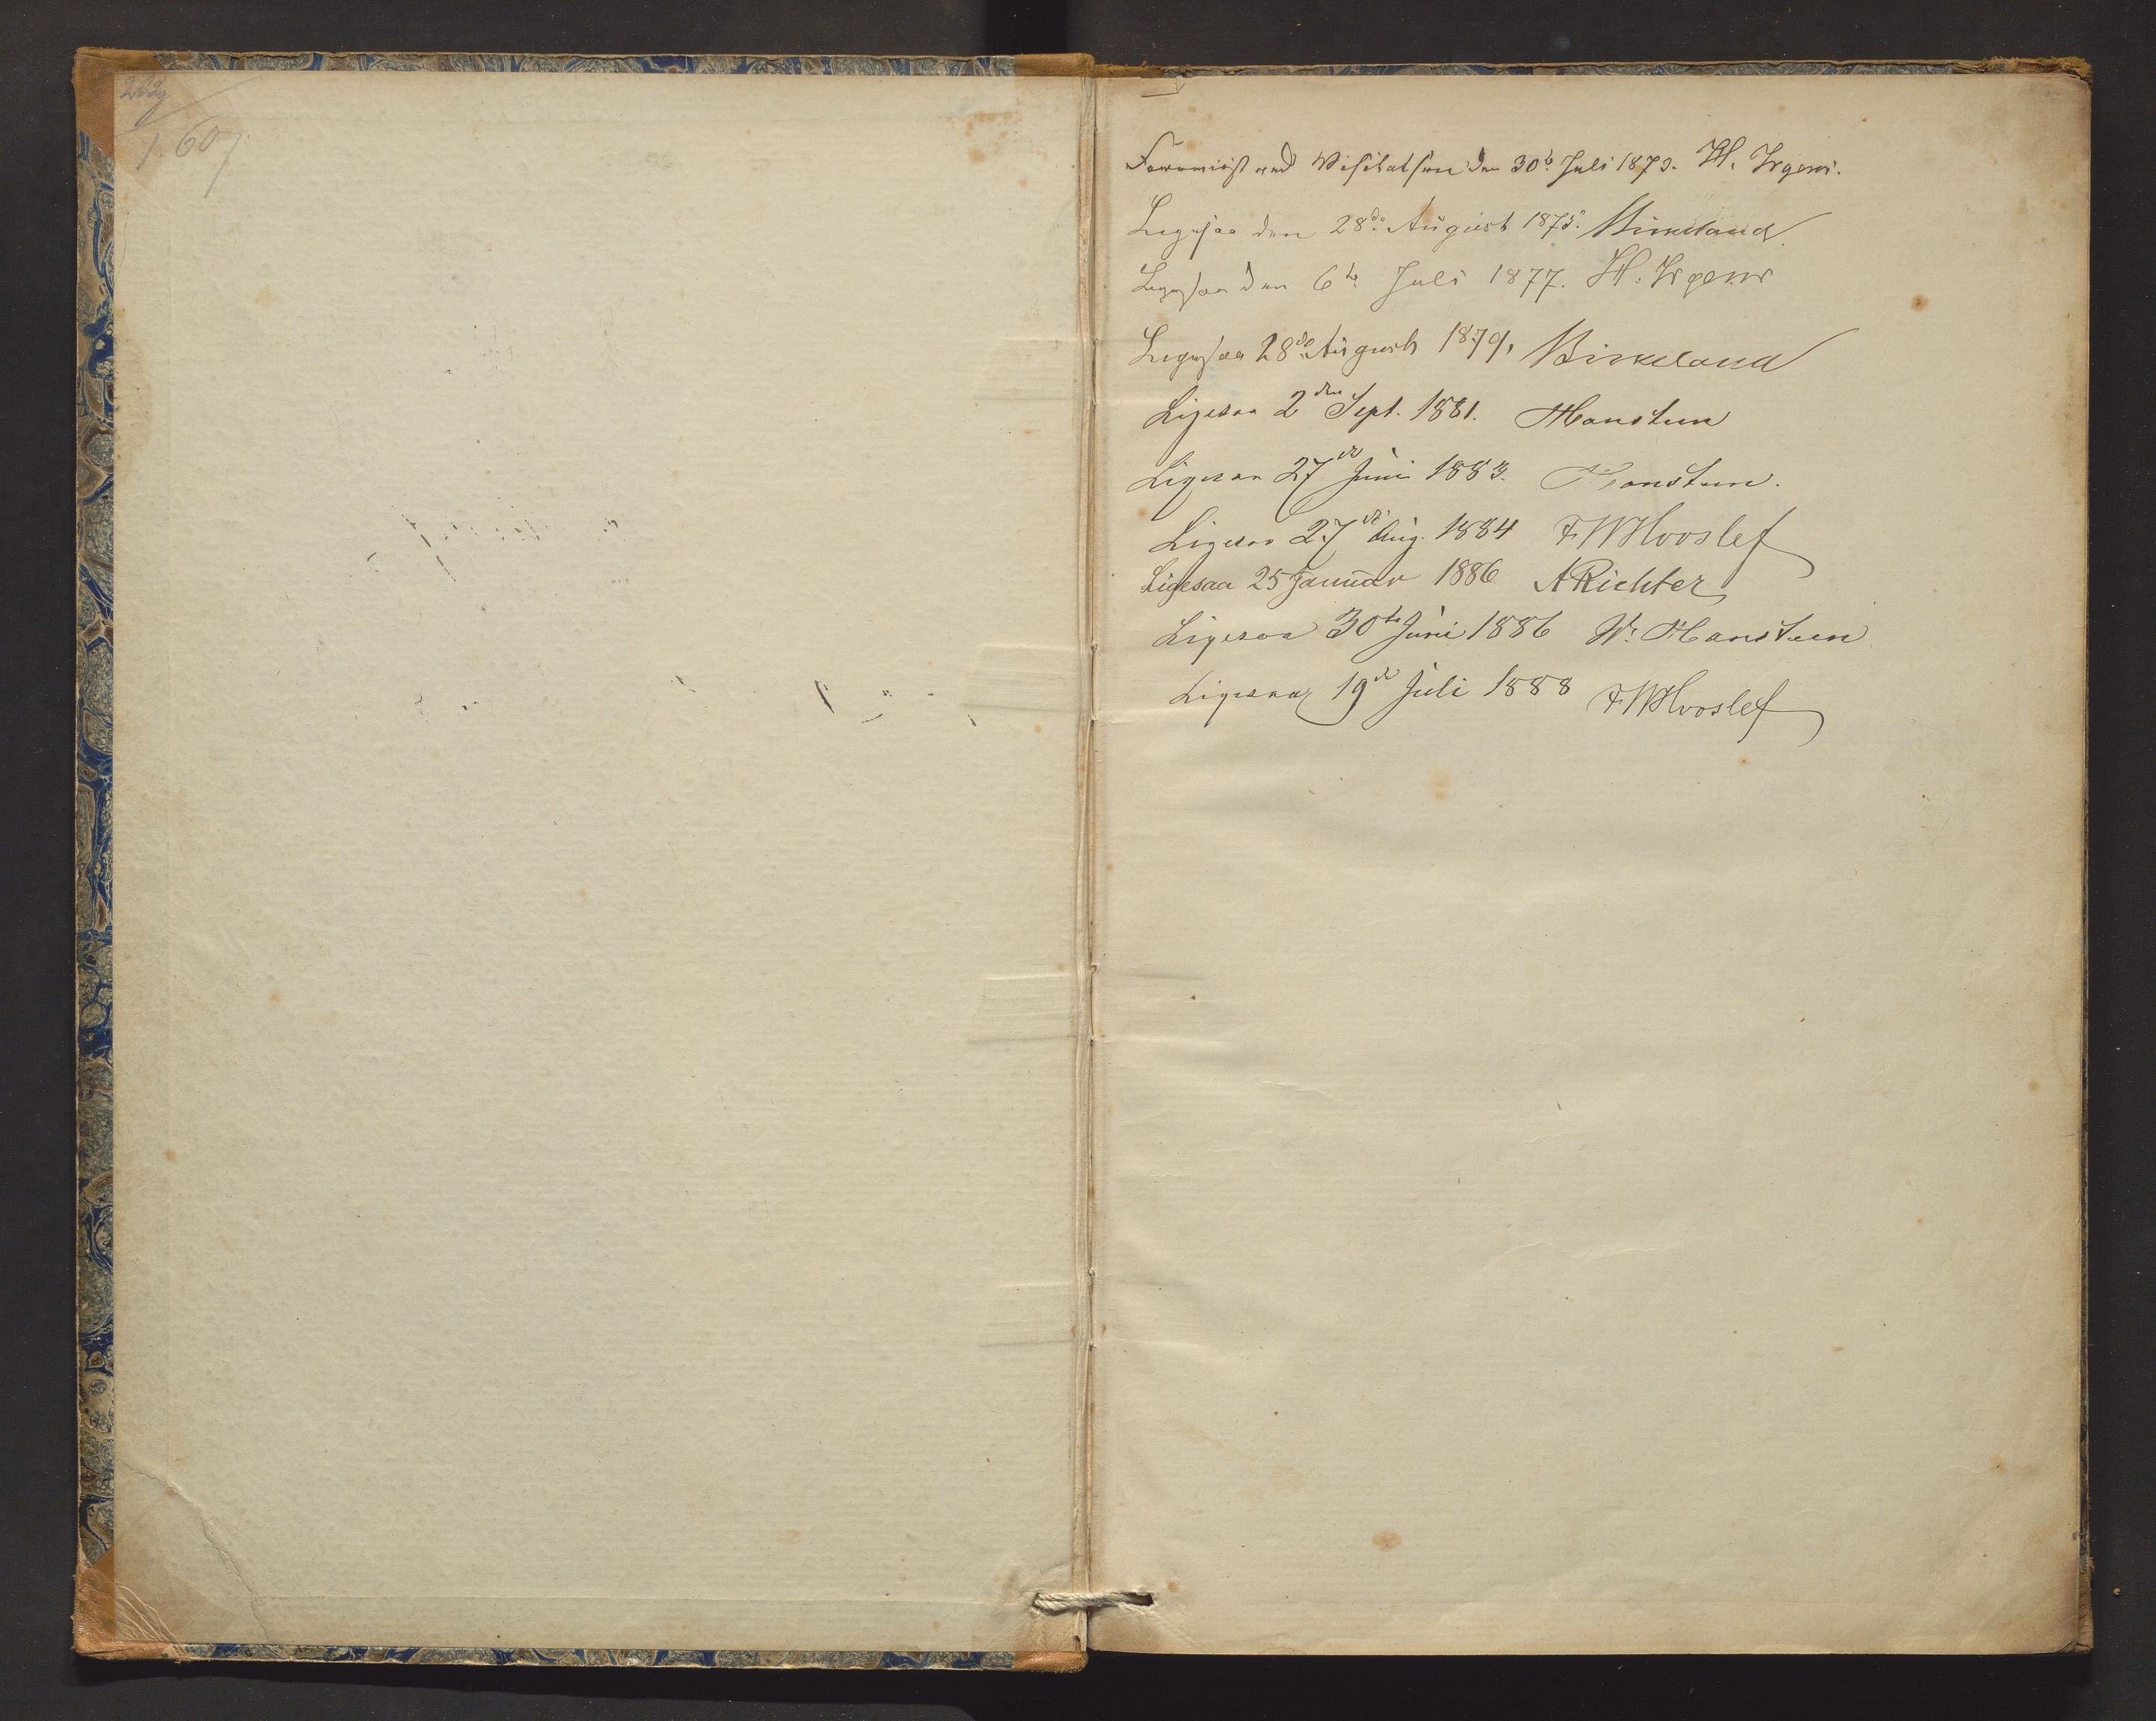 1.60
Foreviist ved Visitatsen den 30te Juli 1873. H. Irgens.
Ligesaa den 28de August 1875. Birkeland
Ligesaa den 6te Juli 1877. H. Irgens
Ligesaa 28de August 1879, Birkeland
Ligesaa 2den Sept. 1881. Hansteen
Ligesaa 27de Juni 1883. Hansteen.
Ligesaa 27de Aug. 1884 FWHvoslef
Ligesaa 25 Januar 1886 ARichter
Ligesaa 30te Juni 1886 W. Hansteen
Ligesaa 19de Juli 1888 FWHvoslef